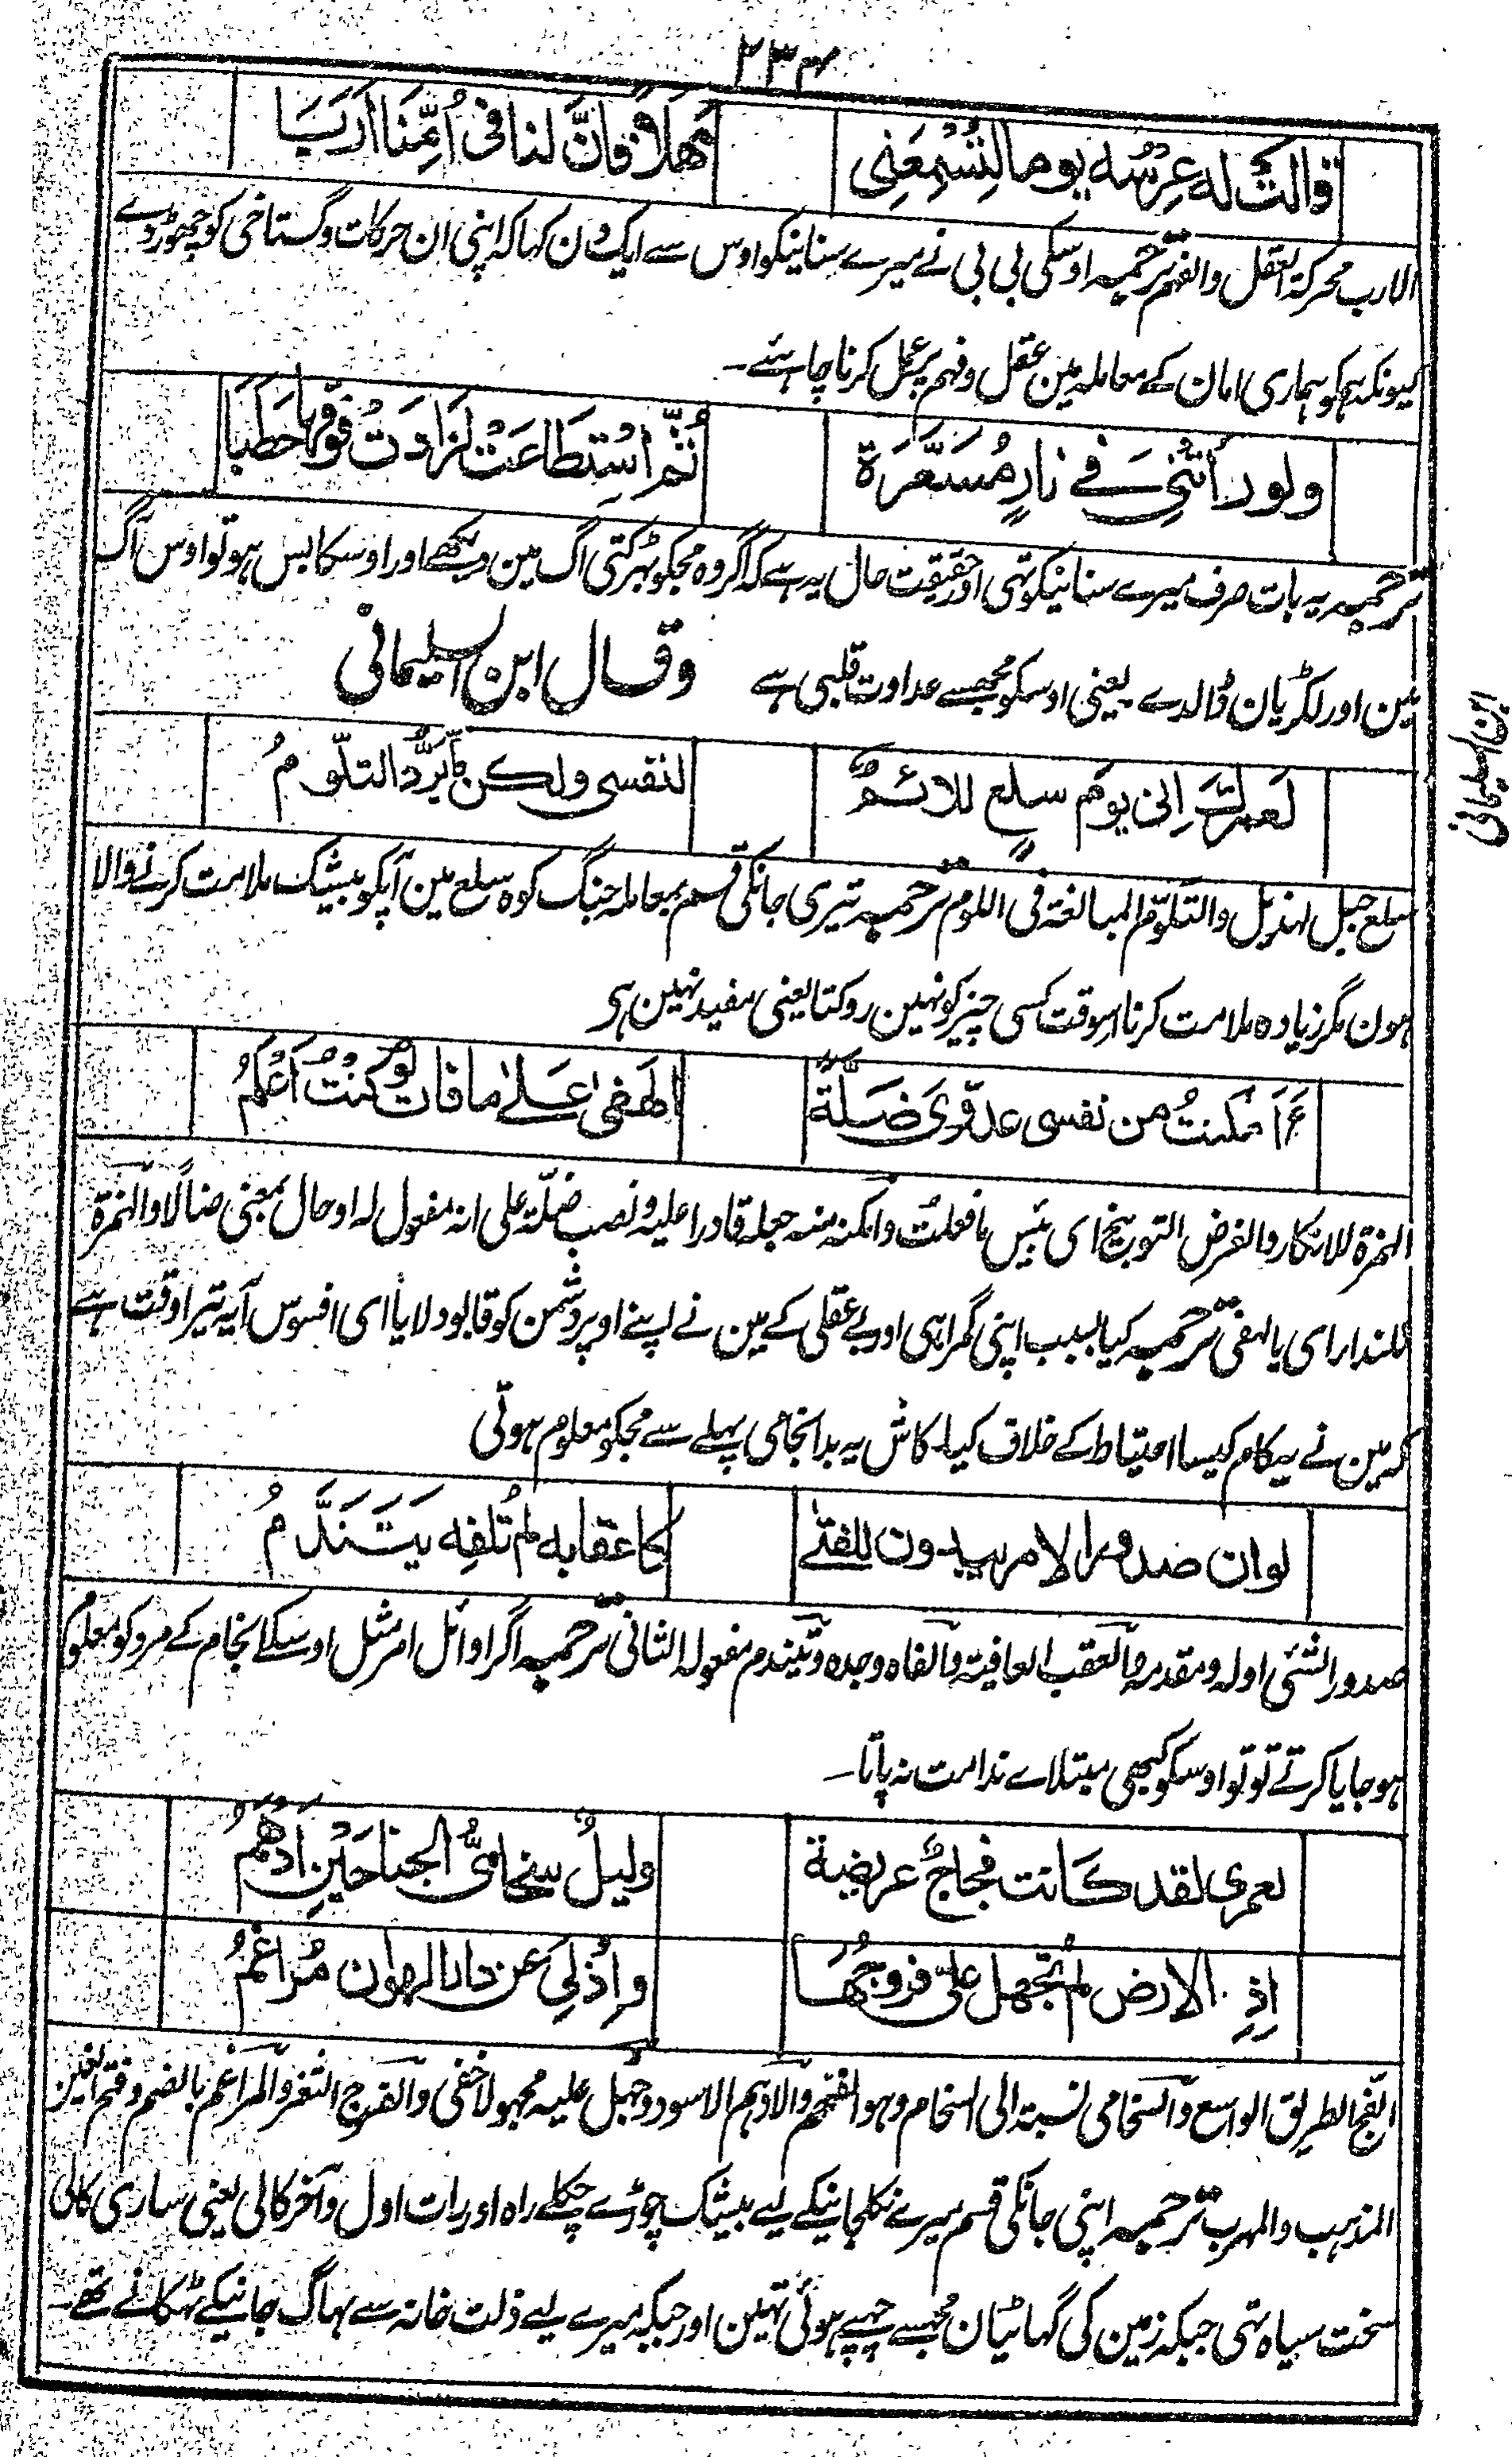 ۲۳۴
قالت له عِرْسُه يوما لِتُسْمِعَنِى مَهْلًا فَاِنَّ لنا فى اُمِّنَا اَرَبَا
الارب محرکة العقل والفہم ترجمہ اوسکی بی بی نے میرے سنانیکو اوس سے ایک دن کہا کہ اپنی ان حرکات وگستاخی کو چھوڑ دے
کیونکہ ہمکو ہماری امان کے معاملہ مین عقل وفہم پر عمل کرنا چاہئے۔
ولو رأتنى فے نارٍ مُسَعَّرَةٍ ثُمَّ اسْتَطَاعَتْ لَزَادَتْ فَوْقَهَا حَطَبَا
ترجمہ یہ بات صرف میرے سنانیکو تہی اور حقیقت حال یہ ہے کہ اگر وہ مجکو بہڑکتی آگ مین دیکھے اور اوسکا بس ہو تو اوس آگ
مین اور لکڑیان ڈالدے یعنی اوسکو مجھسے عداوت قلبی ہے وقال ابن السلیمانی
ابن السلیمانی
لَعمرك اِنى يومَ سلعٍ للائمٌ لنفسى ولكن مايَرُدُّ التلوّمُ
سلع جبل لہذیل والتلوّم المبالغة فی اللوم ترجمہ تیری جانکی قسم بمعاملہ جنگ کوہ سلع مین آپکو بیشک ملامت کرنے والا
ہون مگر زیادہ ملامت کرنا اسوقت کسی چیز کو نہین روکتا یعنی مفید نہین ہی
ءَاَمكنتُ من نفسى عدوّى ضَلَّةً الهفى عَلے ما فات لو كنتُ اَعْلَمُ
الہمزة للانکار والغرض التوبیخ ای بئس ما فعلت وامکنہ منہ جعلہ قادرا علیہ ونصب ضلّة علی انہ مفعول لہ او حال بمعنی ضالًا والہمزة
للندا ر ای یا لہفی ترجمہ کیا بسبب اپنی گمراہی اور بے عقلی کے مین نے اپنے اوپر دشمن کو قابو دلایا ای افسوس آ یہ تیرا وقت ہے
کہ مین نے یہ کام کیسا احتیاط کے خلاف کیا۔ کاش یہ بدانجامی پہلے سے مجکو معلوم ہوتی
لوان صدور الامر يبدون للفتے كاعقابه لم تُلفِه يَتَنَدَّمُ
صدور الشئی اولہ ومقدمہ والعقب العاقبة والفاہ وجدہ ویتندم مفعولہ الثانی ترجمہ اگر اوائل امر مثل اوسکے انجام کے مرد کو معلوم
ہو جایا کرتے تو تو اوسکو کبھی مبتلاے ندامت نہ پاتا۔
لعمرى لقد كانت فجاجٌ عريضة وليلٌ سخامىُّ الجناحَيْنِ اَدْهَمُ
اِذِ الارض لم تُجهل علىّ فروجُها واِذْ لِى عن دار الهوان مُرَاغَمُ
الفج الطریق الواسع والسخامی نسبتہ الی السخام وہو الفحم والادہم الاسود وجہل علیہ مجہولا خفی والفرج الثغر والمراغم بالضم وفتح الغین
المذہب والمہرب ترجمہ اپنی جانکی قسم میرے نکلجانیکے لیے بیشک چوڑے چکلے راہ اور رات اول وآخر کالی یعنی ساری کالی
سخت سیاہ تہی جبکہ زمین کی گہاٹیان مجہسے چہپے ہوئی نہین اور جبکہ میرے لیے ذلت خانہ سے بہاگ جانیکے ٹہکانے تھے۔